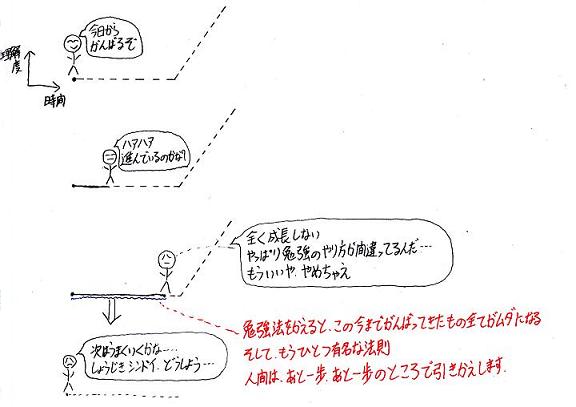 今日から
がんばるぞ
理解度
時間
ハアハア
進んでいるのかな?
全く成長しない
やっぱり勉強のやり方が間違ってるんだ…
もういいや、やめちゃえ
勉強法をかえると、この今までがんばってきたもの全てがムダになる
そして、もうひとつ有名な法則
人間は、あと一歩、あと一歩のところで引きかえします。
次はうまくいくかな…
しょうじきシンドイ、どうしよう…